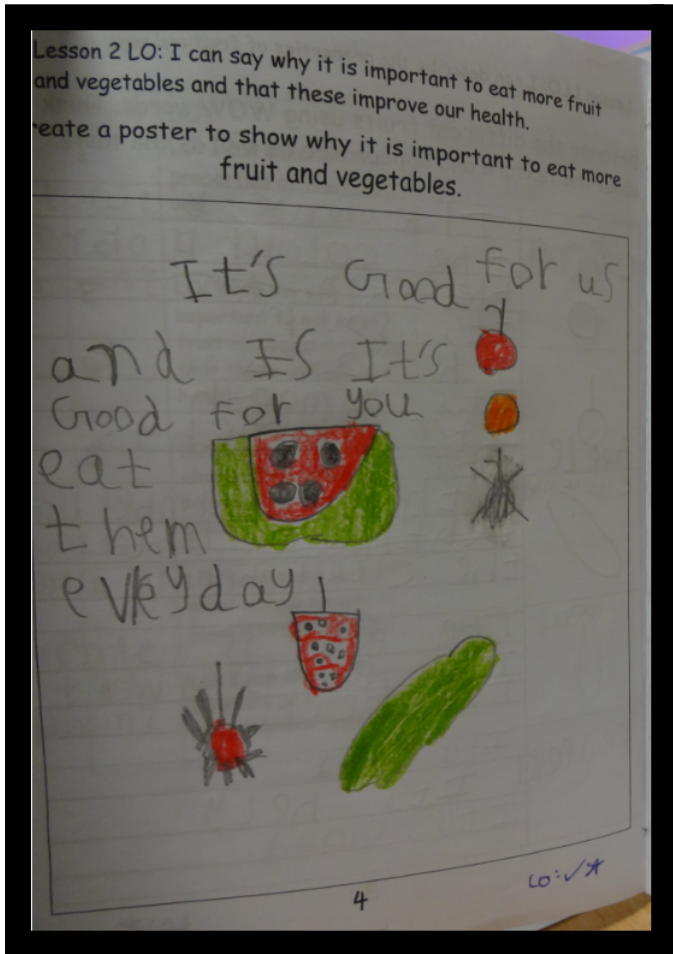 Lesson 2 LO: I can say why it is important to eat more fruit
and vegetables and that these improve our health.
reate a poster to show why it is important to eat more
fruit and vegetables.
It's Good for us
and IS It's
Good for you
eat
them
everyday
LO: ✓
4